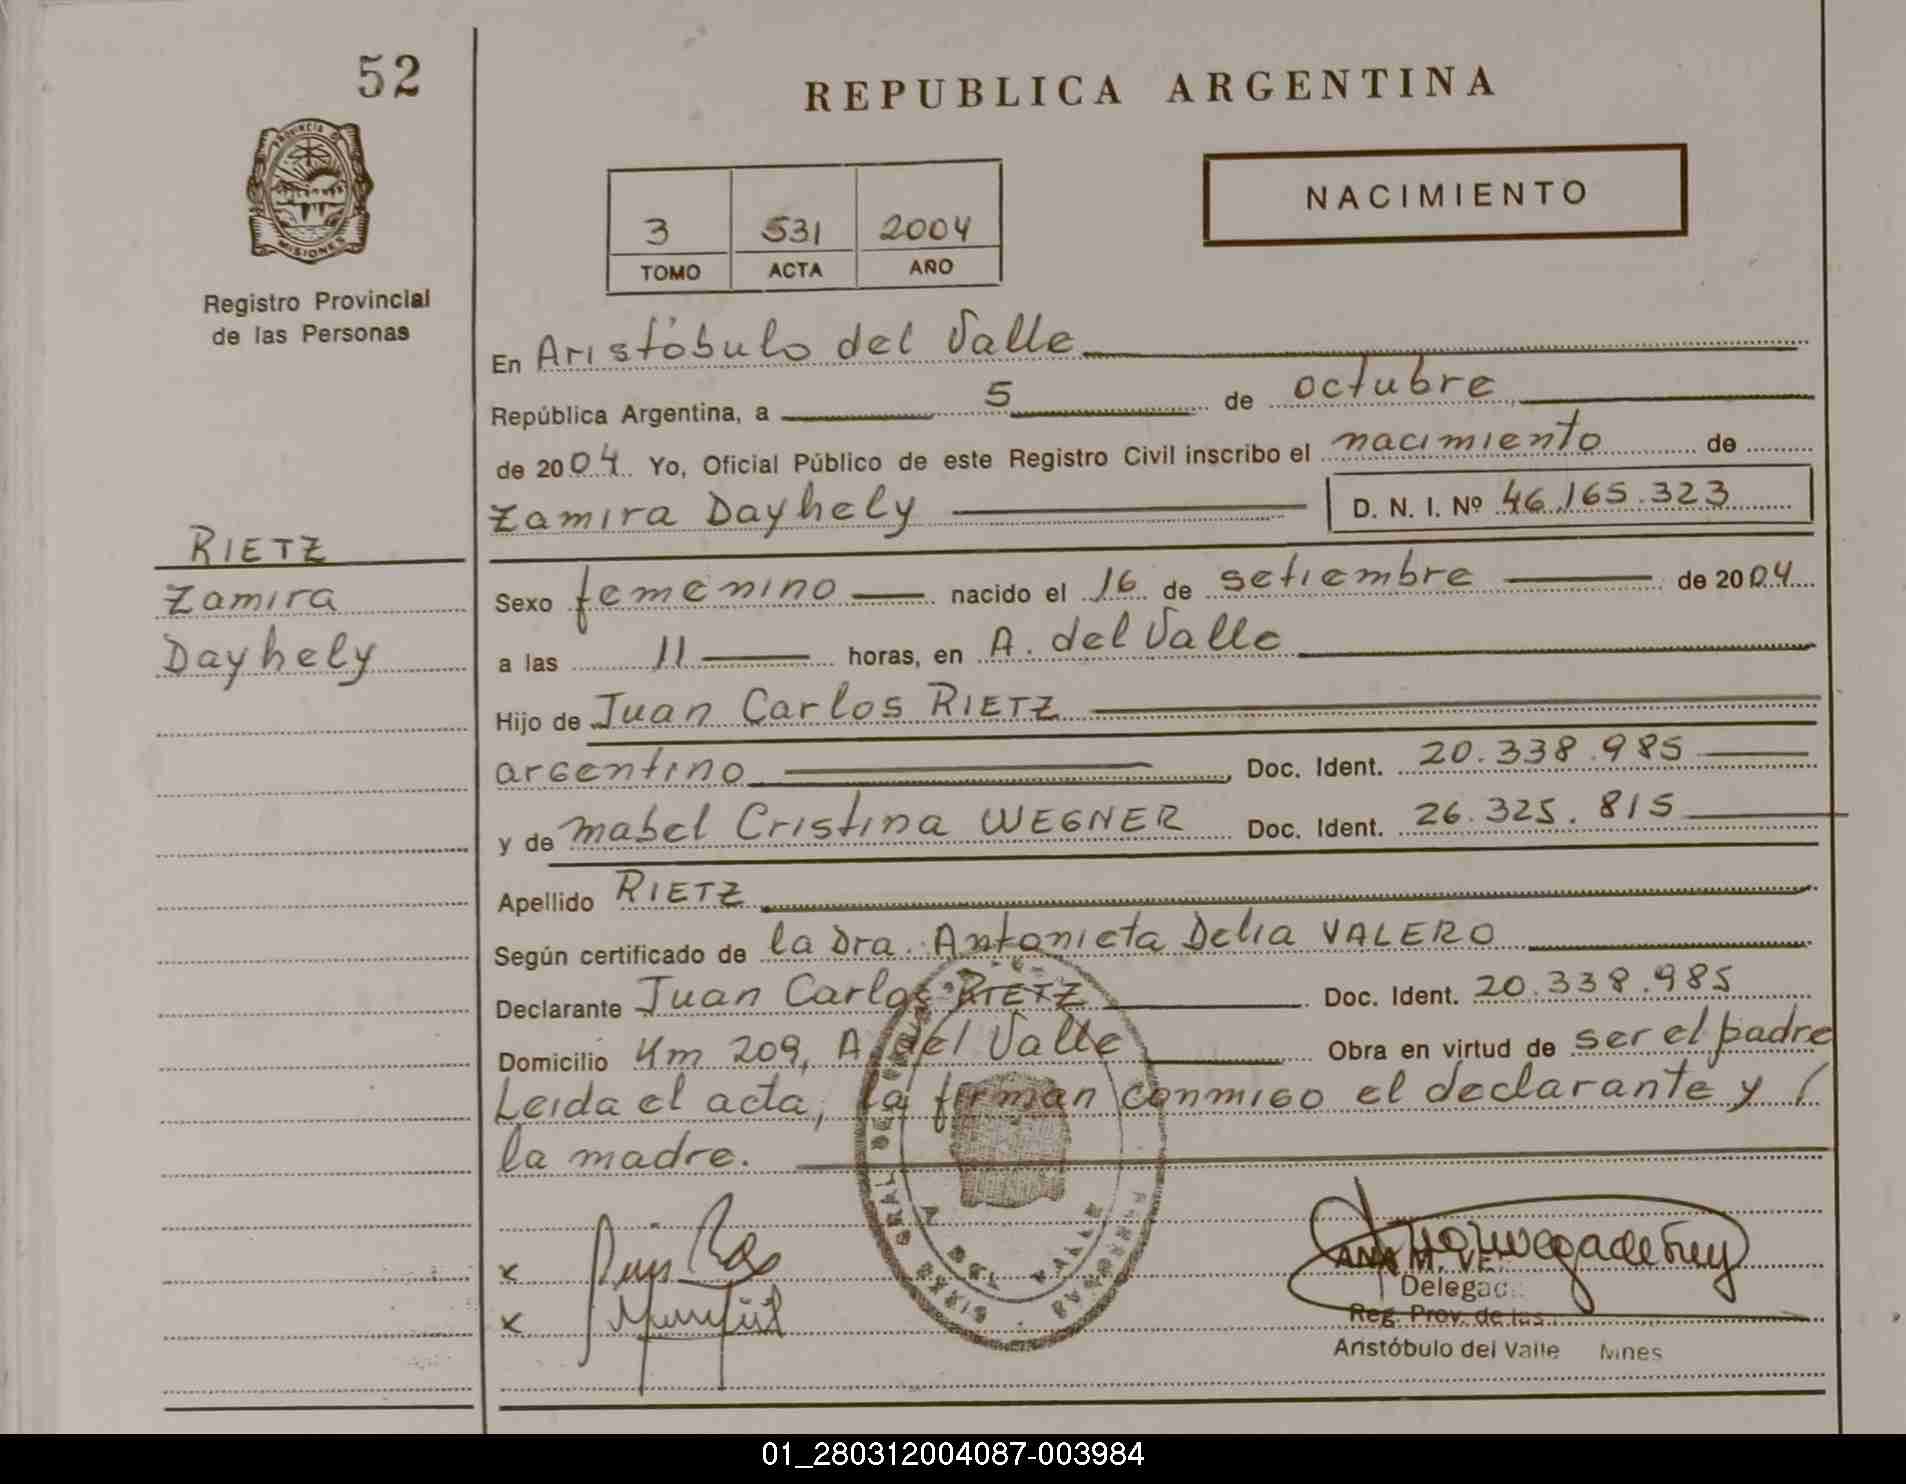 52
REPUBLICA ARGENTINA
PROVINCIA DE
MISIONES
Registro Provincial
de las Personas
3 531 2004
TOMO ACTA AÑO
NACIMIENTO
En Aristóbulo del Valle
República Argentina, a 5 de octubre
de 2004. Yo, Oficial Público de este Registro Civil inscribo el nacimiento de
Zamira Dayhely D. N. I. Nº 46.165.323
RIETZ
Zamira
Dayhely
Sexo femenino nacido el 16 de setiembre de 2004
a las 11 horas, en A. del Valle
Hijo de Juan Carlos RIETZ
argentino Doc. Ident. 20.338.985
y de Mabel Cristina WEGNER Doc. Ident. 26.325.815
Apellido RIETZ
Según certificado de la Dra. Antonieta Delia VALERO
Declarante Juan Carlos RIETZ Doc. Ident. 20.338.985
Domicilio Km 209, A. del Valle Obra en virtud de ser el padre
Leida el acta, la firman conmigo el declarante y /
la madre.
x
x
ANA M. VE
Delegac
Reg. Prov. de las
Aristóbulo del Valle Mnes
A. DEL VALLE
01_280312004087-003984